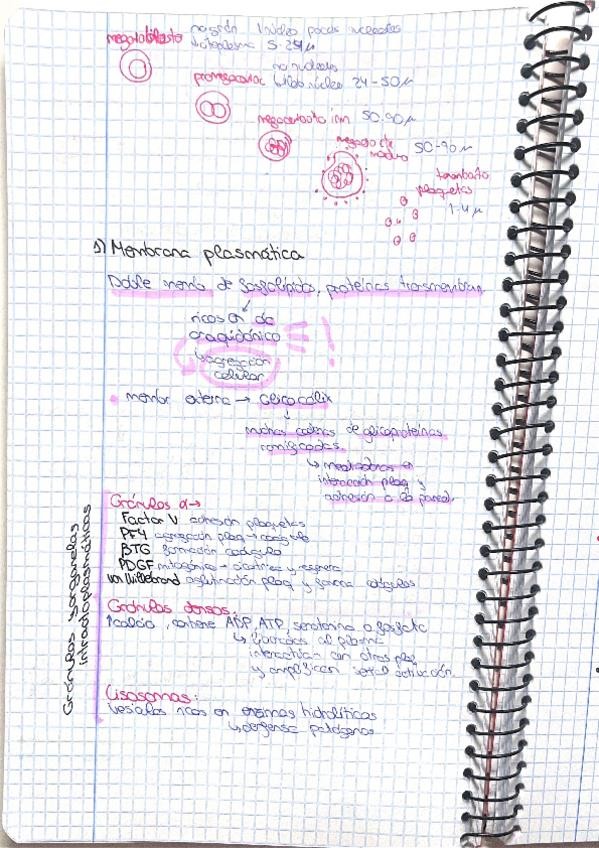 megacarioblasto no grán 1 núcleo pocos nucleolos
citoplasma 5-25 μ
no nucleolos
promegacarioc bilob núcleo 24-50 μ
megacariocito inm 50-90 μ
megacariocito
maduro 50-90 μ
trombocito
plaquetas
1-4 μ
1) Membrana plasmática
Doble memb de fosfolípidos, proteínas transmembran
ricos en ác
araquidónico
!
↳ agregación
celular
• membr externa → Glicocálix
muchas cadenas de glicoproteínas
ramificadas.
↳ mediadoras en
interacción plaq y
adhesión a la pared.
Gránulos y organelas
intracitoplasmáticas
Gránulos α →
Factor V adhesión plaquetas
PF4 agregación plaq → coágulo
βTG formación coágulo
PDGF mitogénico → cicatriza y regenera
von Willebrand aglutinación plaq y forma coágulos
Gránulos densos:
↑calcio, contiene ADP, ATP, serotonina o fosfato
↳ liberados al plasma
interactúan con otras plaq
y amplifican activación.
Lisosomas:
vesículas ricas en enzimas hidrolíticas
↳ defensa patógenos